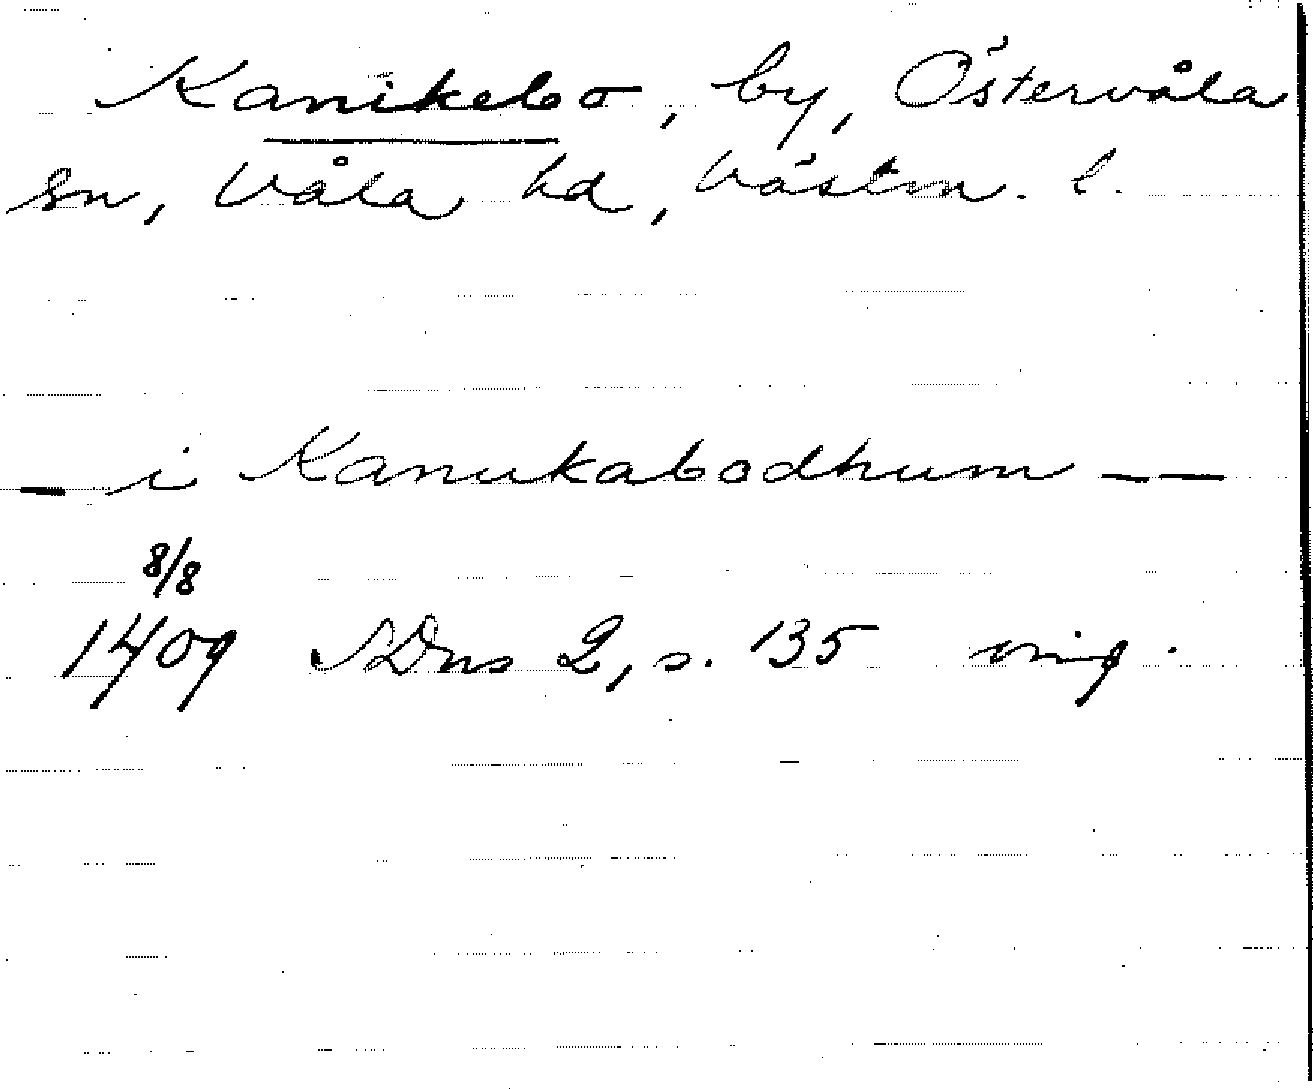 Kanikebo, by, Östervåla
sn, Våla hd, Västm. l.
— i Kanukabodhum — —
8/8
1409 SDns 2, s. 135 orig.